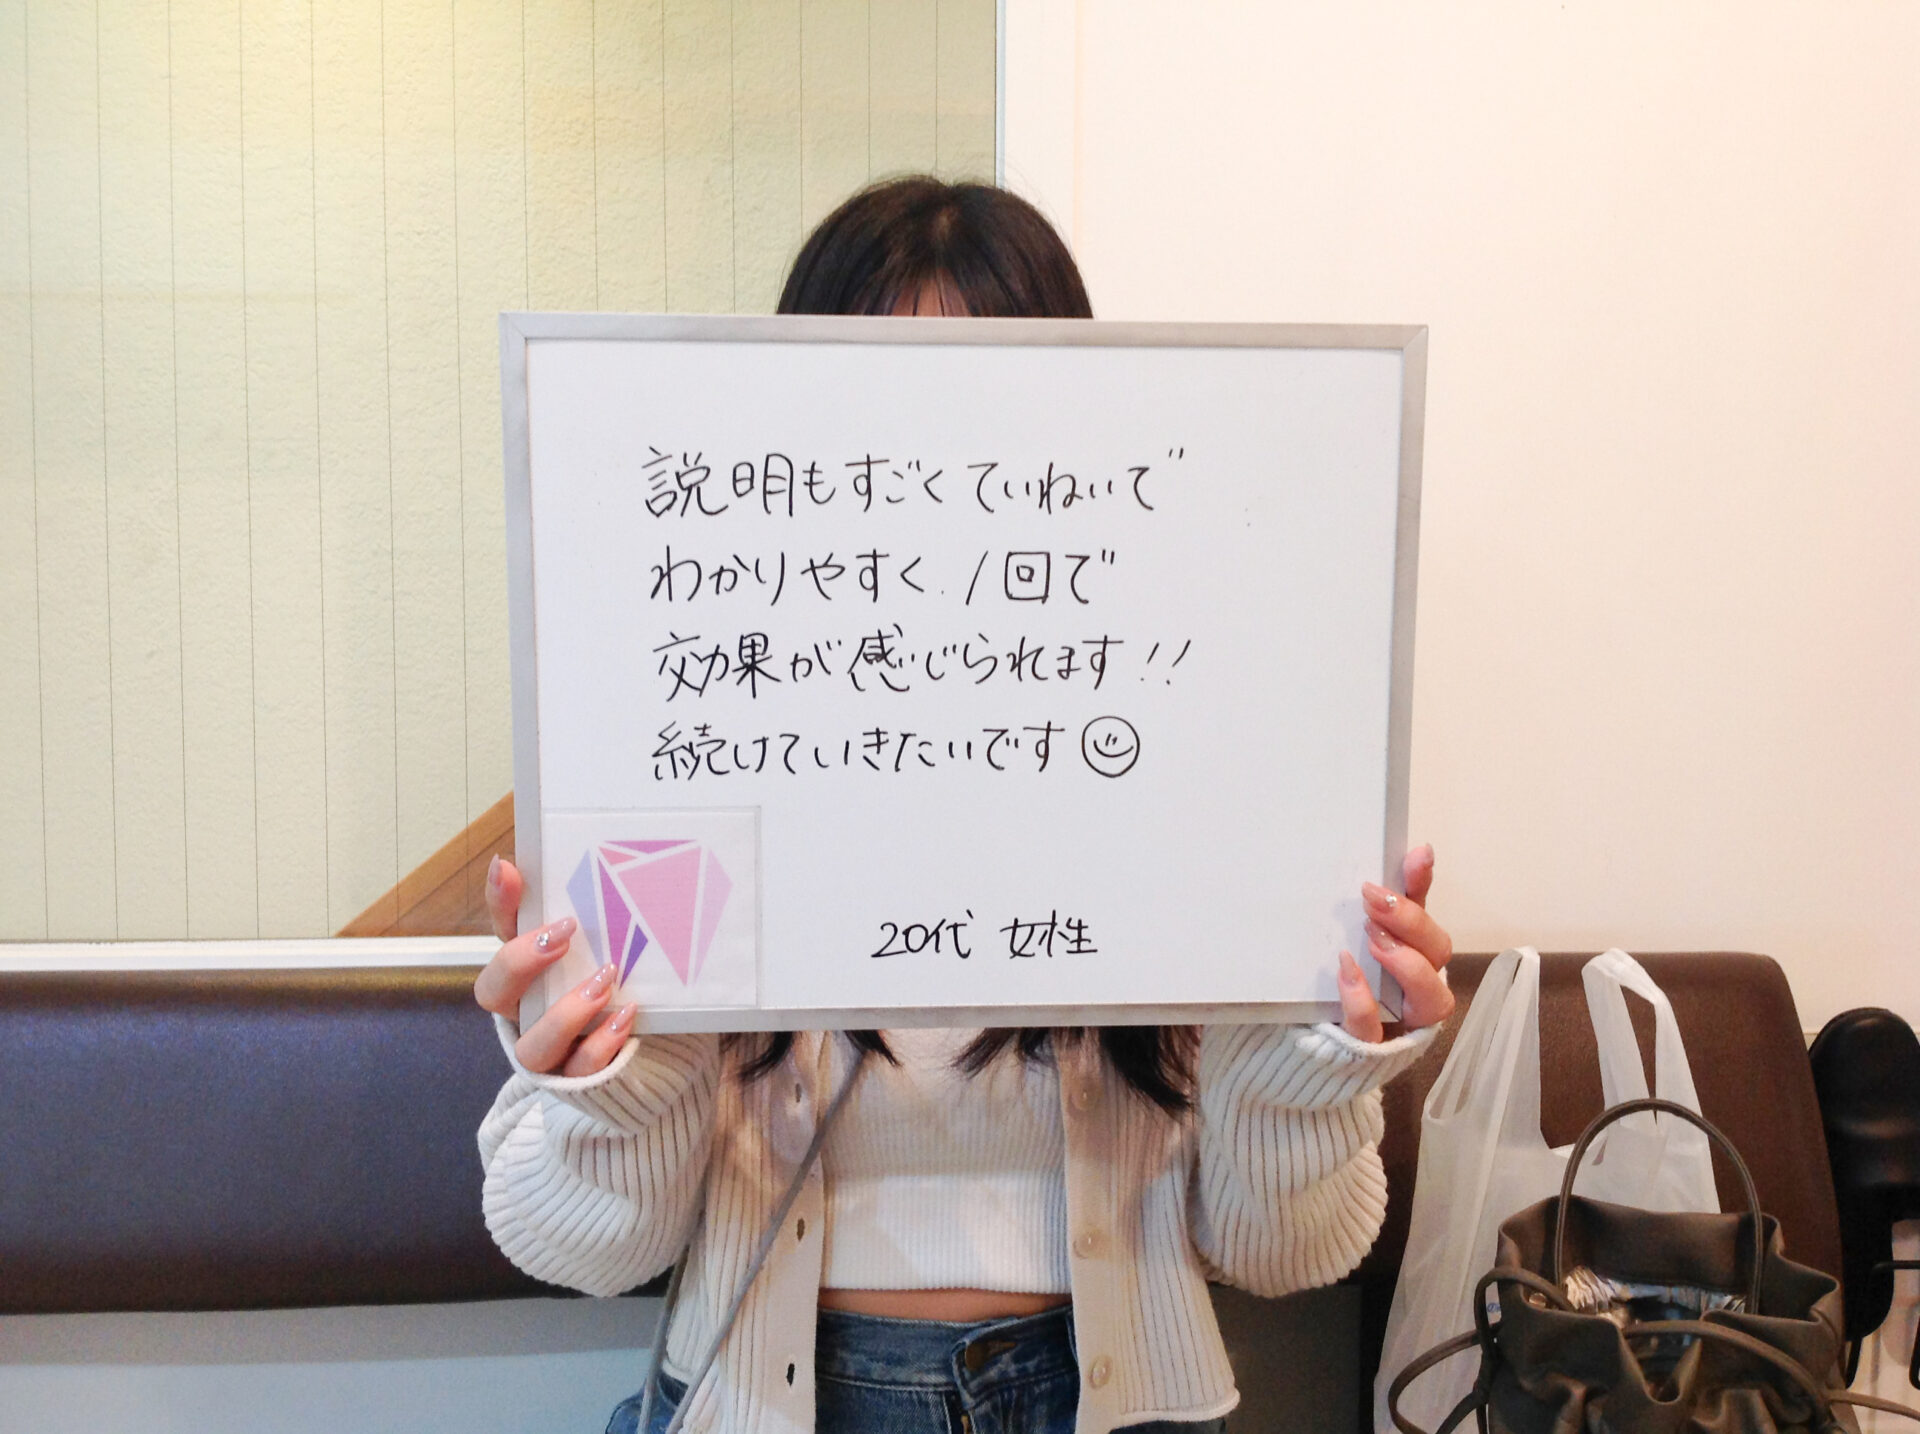 説明もすごくていねいで
わかりやすく、1回で
効果が感じられます!!
続けていきたいです☺
20代 女性